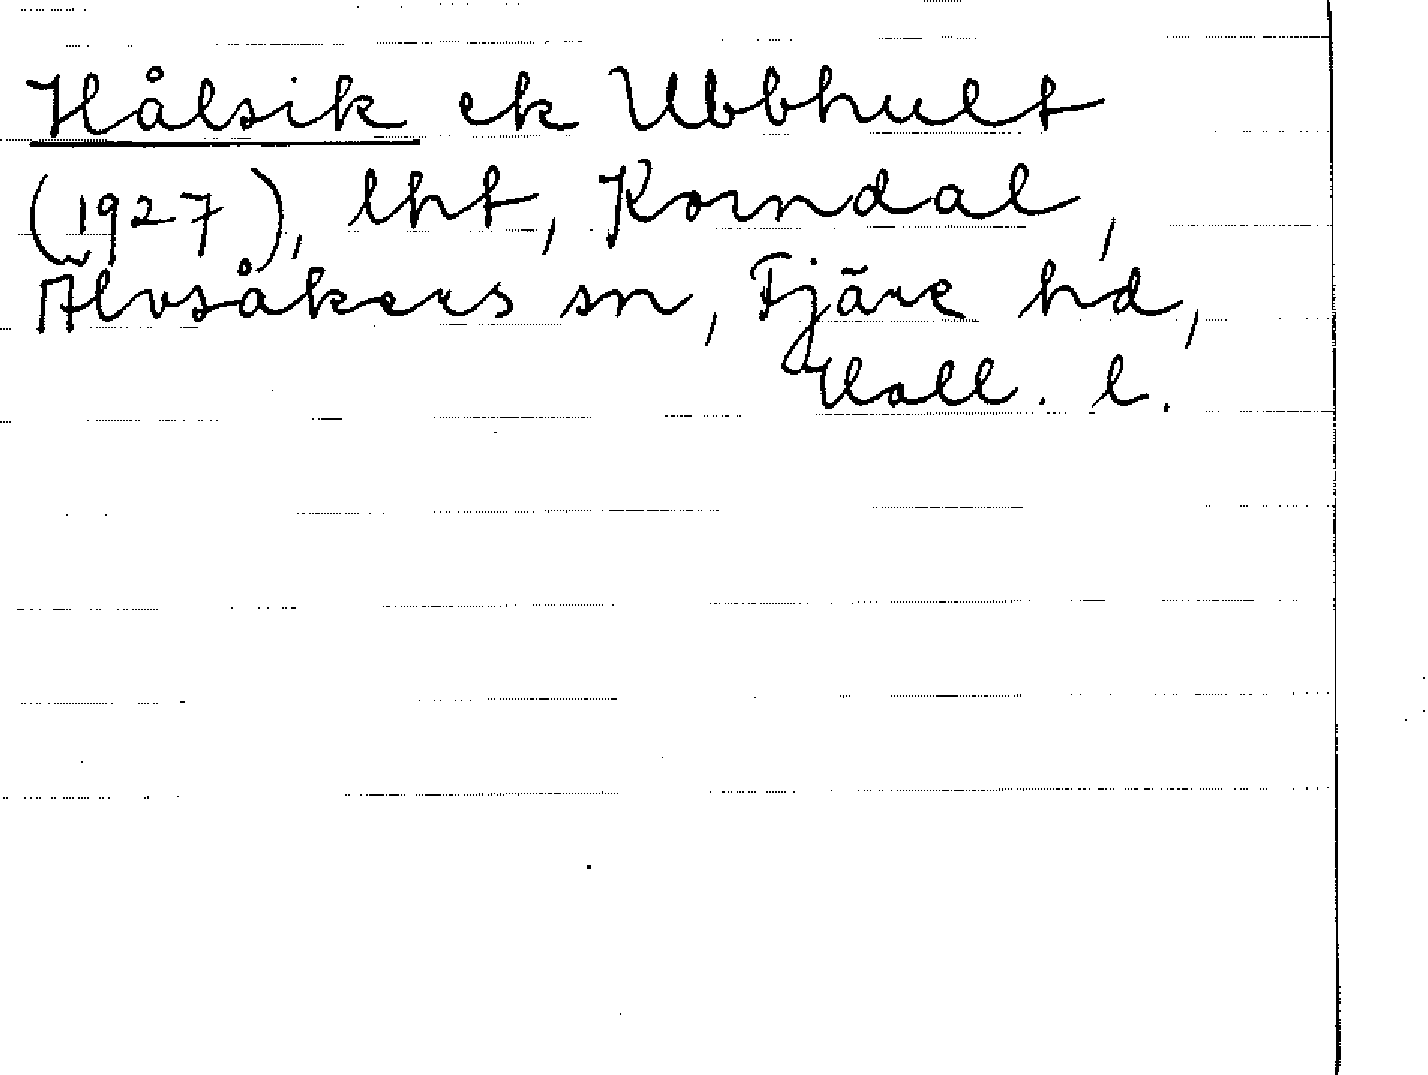 Hålsik ek Ubbhult
(1927), lht, Korndal,
Älvsåkers sn, Fjäre hd,
Hall. l.